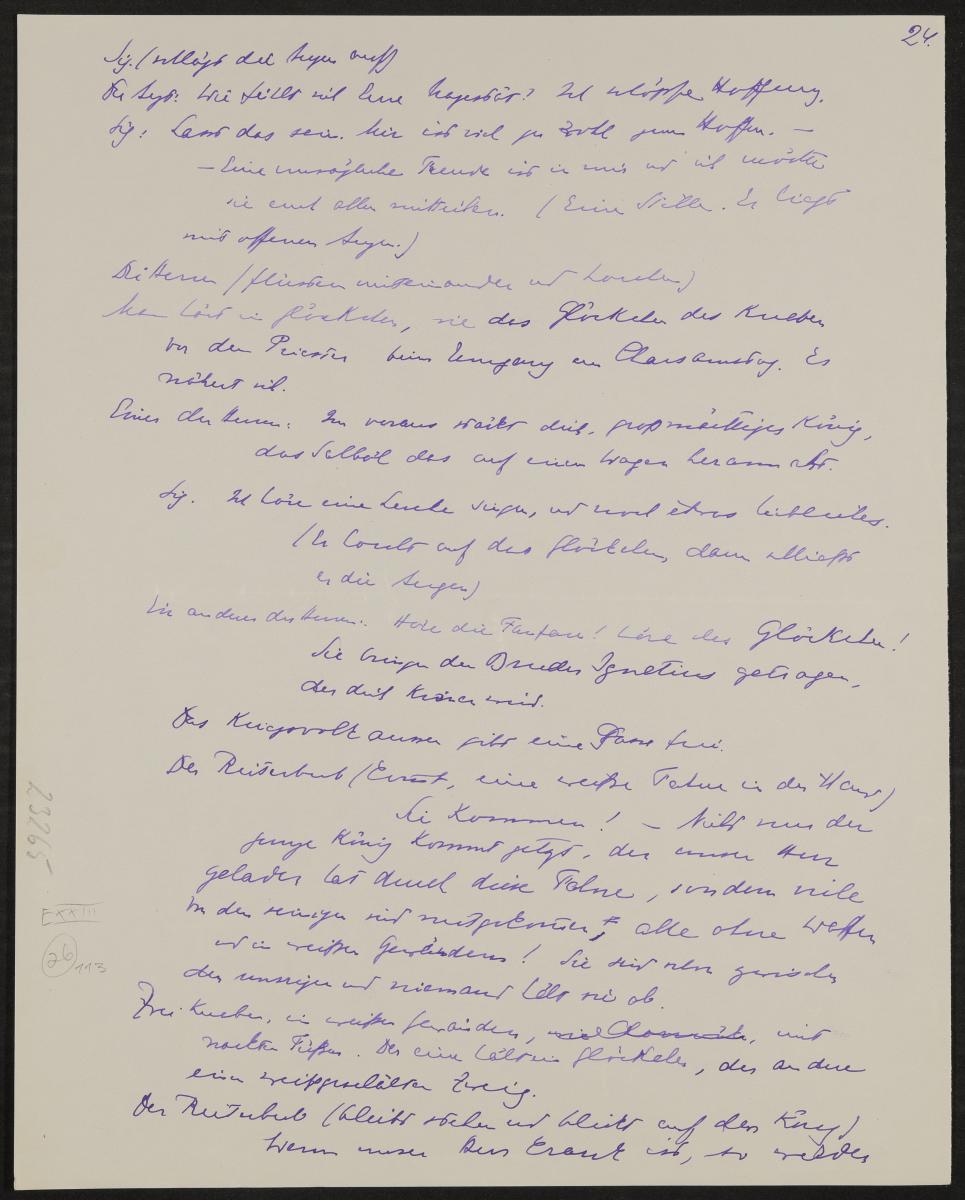 24.
Sig. (schlägt die Augen auf)
Der Arzt: Wie fühlt sich Eure Majestät? Ich schöpfe Hoffnung.
Sig: Lasst das sein. Mir ist viel zu wohl zum Hoffen. —
— Eine unsägliche Freude ist in mir und ich möchte
sie euch allen mitteilen. (Eine Stille. Er liegt
mit offenen Augen.)
Die Herren (flüstern miteinander und horchen)
Man hört ein Glöckchen, wie das Glöckchen des Knaben
vor dem Priester beim Umgang am Charsamstag. Es
nähert sich.
Einer der Herren: Im voraus stärkt dich, großmächtiger König,
das Salböl das auf einem Wagen herannaht.
Sig. Ich höre eine Lerche singen, und noch etwas lieblicheres.
(Er horcht auf das Glöckchen, dann schließt
er die Augen)
Ein anderer der Herren: Höre die Fanfare! höre das Glöckchen!
Sie bringen den Bruder Ignatius getragen,
der dich krönen wird.
Das Kriegsvolk aussen gibt eine Gasse frei.
Der Reiterbub (Ernst, eine weiße Fahne in der Hand)
Sie kommen! — Nicht nur der
junge König kommt jetzt, den unser Herr
geladen hat durch diese Fahne, sondern viele
von den seinigen sind mitgekommen, alle ohne Waffen
und in weißen Gewändern! Sie sind schon zwischen
den unsrigen und niemand hält sie ab.
Zwei Knaben, in weißen Gewändern, mit
nackten Füßen. Der eine hält ein Glöckchen, der andere
einen weißgeschälten Zweig.
Der Reiterbub (bleibt stehen und blickt auf den König)
Wenn unser Herr krank ist, so
23265
EXXIII
26
113